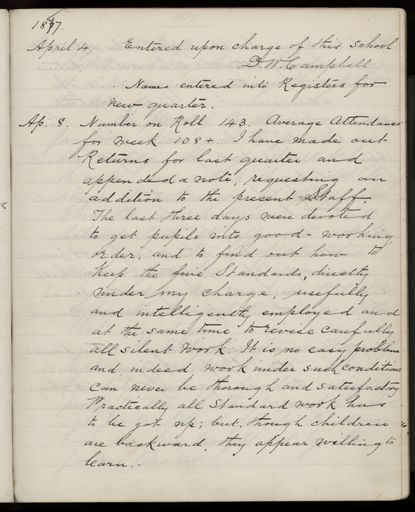 1887.
April 4. Entered upon charge of this School
D. W. Campbell
Names entered into Registers for
new quarter.
Ap. 8. Number on Roll 143. Average Attendance
for week 108+. I have made out
Returns for last quarter and
appended a note, requesting an
addition to the present Staff.
The last three days were devoted
to get pupils into good-working
order, and to find out how to
keep the five Standards, directly
under my charge, usefully
and intelligently employed and
at the same time to revise carefully
all silent work. It is no easy problem
and indeed work under such conditions
can never be thorough and satisfactory
Practically all Standard work has
to be got up; but, though children
are backward, they appear willing to
learn.